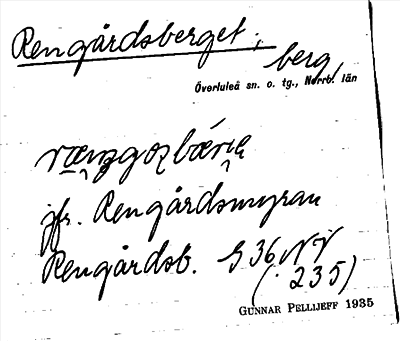 Rengårdsberget, berg,
Överluleå sn. o. tg., Norrb. län
jfr. Rengårdsmyran
Rengårdsb. G 36 NV
( 235)
GUNNAR PELLIJEFF 1935